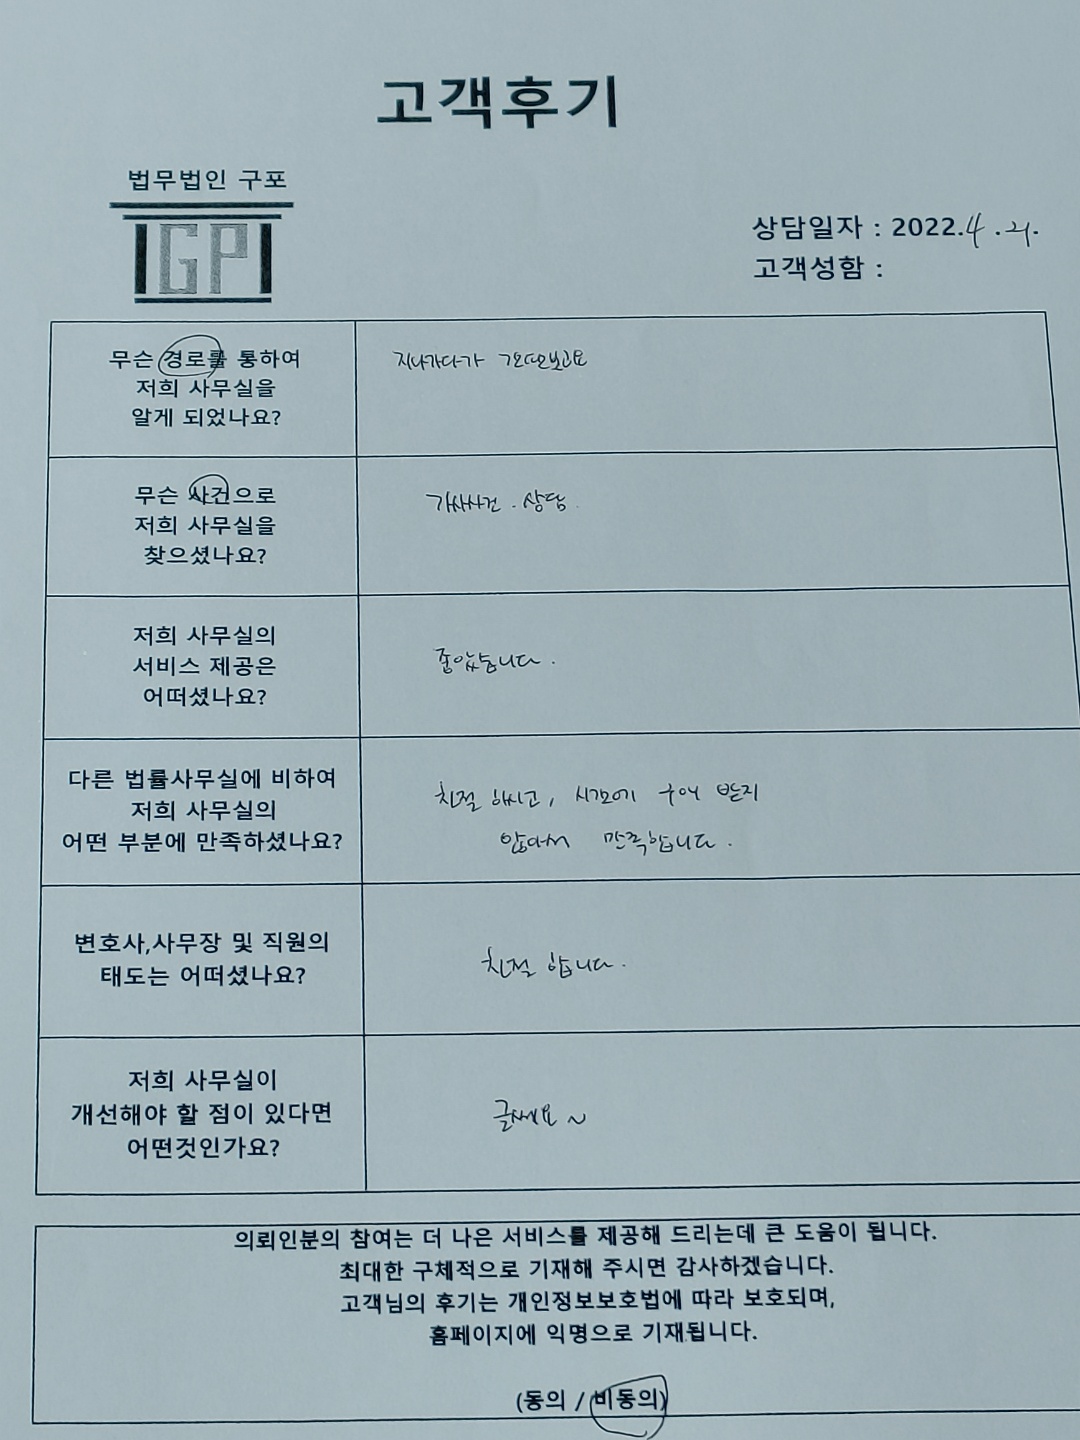 고객후기
법무법인 구포
GP
상담일자 : 2022.4.21.
고객성함 :
무슨 경로를 통하여
저희 사무실을
알게 되었나요?
지나가다가 간판보고요
무슨 사건으로
저희 사무실을
찾으셨나요?
가사사건. 상담.
저희 사무실의
서비스 제공은
어떠셨나요?
좋았습니다.
다른 법률사무실에 비하여
저희 사무실의
어떤 부분에 만족하셨나요?
친절 하시고, 시간에 구애 받지
않아서 만족합니다.
변호사,사무장 및 직원의
태도는 어떠셨나요?
친절 합니다.
저희 사무실이
개선해야 할 점이 있다면
어떤것인가요?
글쎄요~
의뢰인분의 참여는 더 나은 서비스를 제공해 드리는데 큰 도움이 됩니다.
최대한 구체적으로 기재해 주시면 감사하겠습니다.
고객님의 후기는 개인정보보호법에 따라 보호되며,
홈페이지에 익명으로 기재됩니다.
(동의 / 비동의)